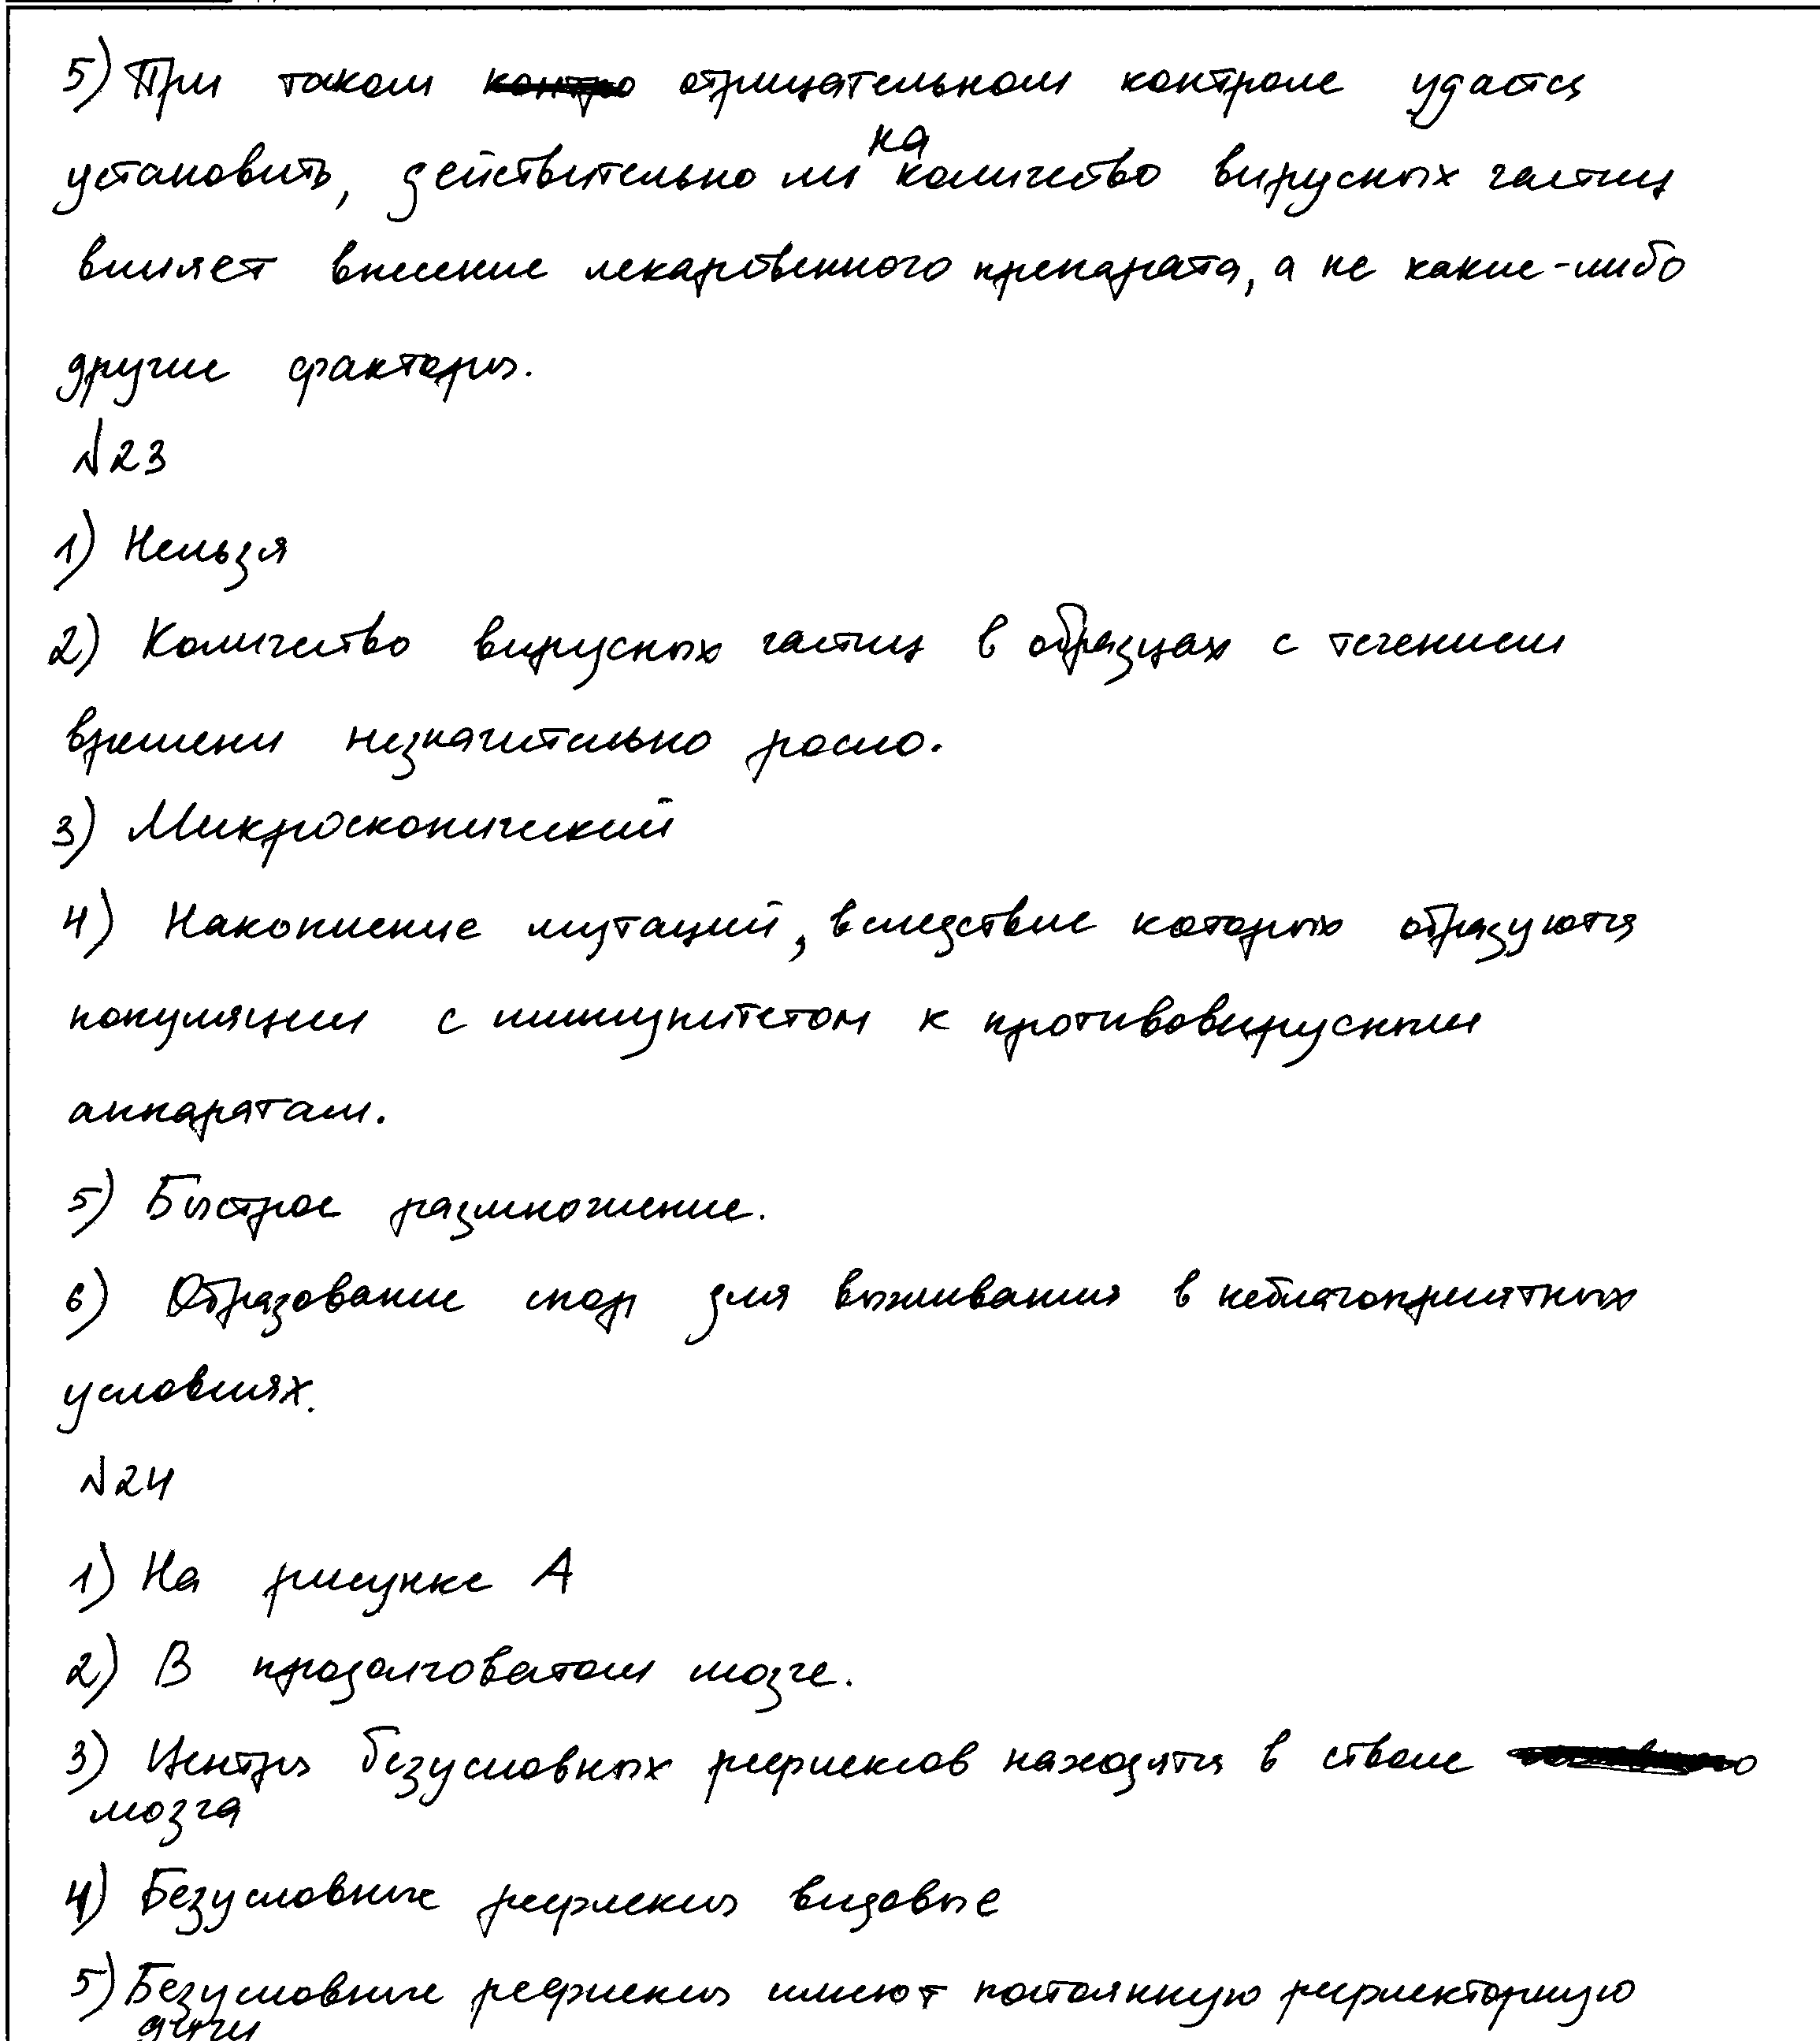 5) При таком контро отрицательном контроле удастся
установить, действительно ли на количество вирусных частиц
влияет внесение лекарственного препарата, а не какие-либо
другие факторы.
№23
1) Нельзя
2) Количество вирусных частиц в образцах с течением
времени незначительно росло.
3) Микроскопический
4) Накопление мутаций, вследствие которых образуются
популяции с иммунитетом к противовирусным
аппаратам.
5) Быстрое размножение.
6) Образование спор для выживания в неблагоприятных
условиях.
№24
1) На рисунке А
2) В продолговатом мозге.
3) Центры безусловных рефлексов находятся в стволе
мозга
4) Безусловные рефлексы видовые
5) Безусловные рефлексы имеют постоянную рефлекторную
дугу